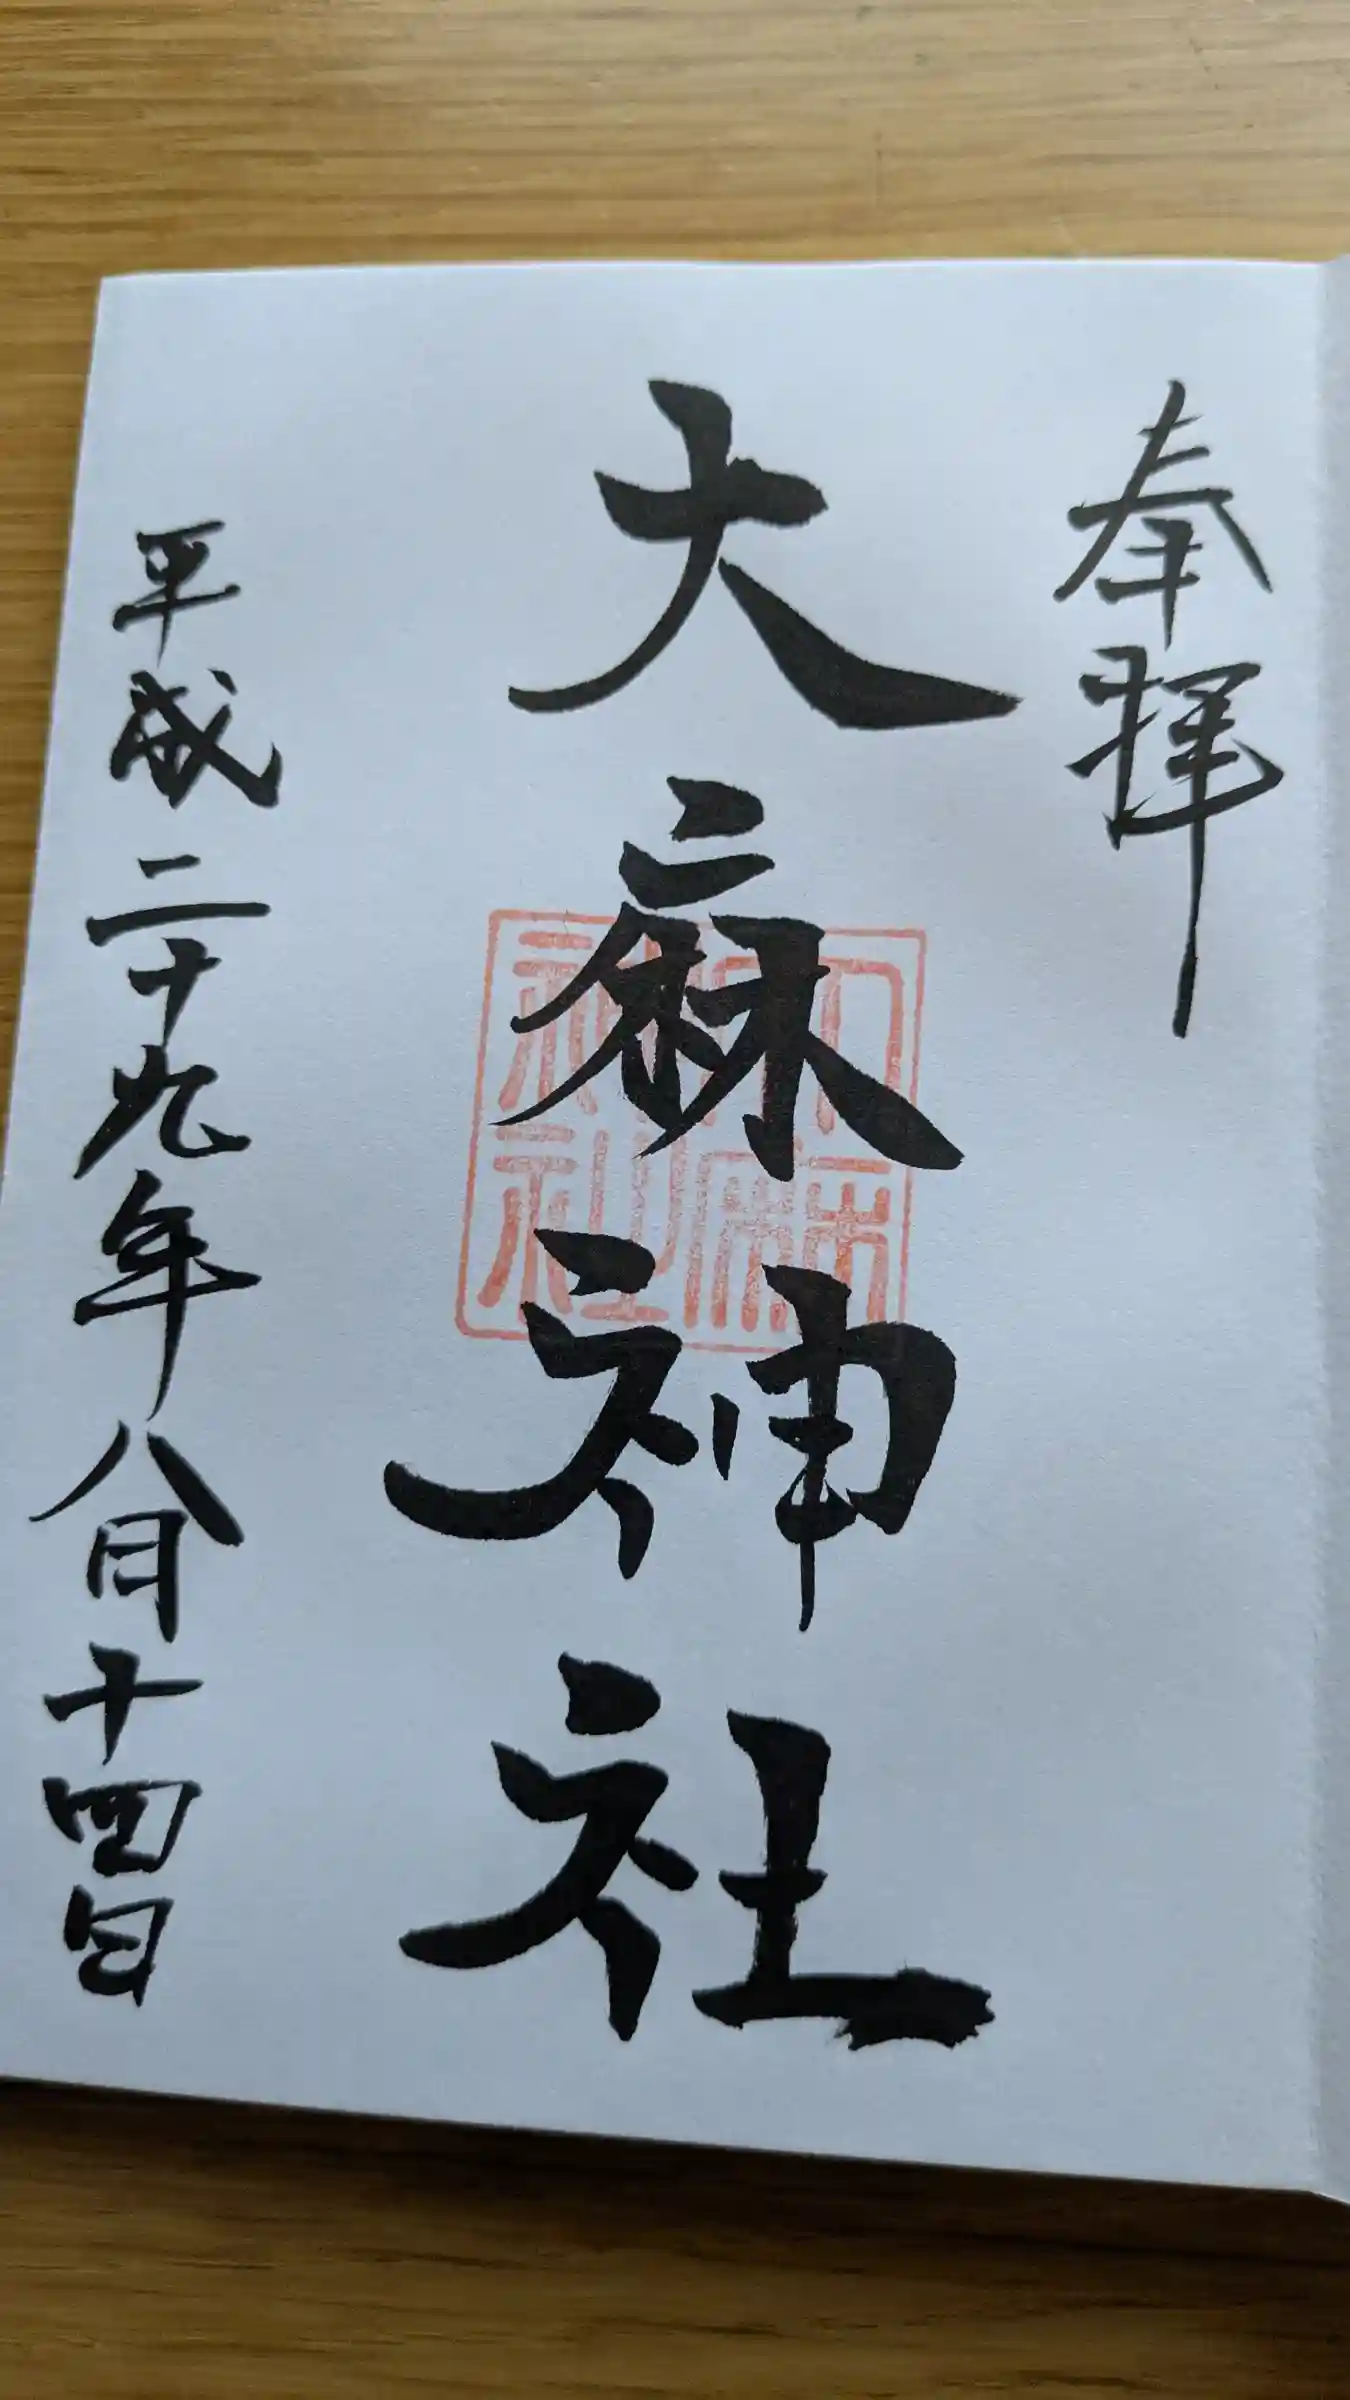 奉拝
大麻神社
大麻神社
平成二十九年八月十四日